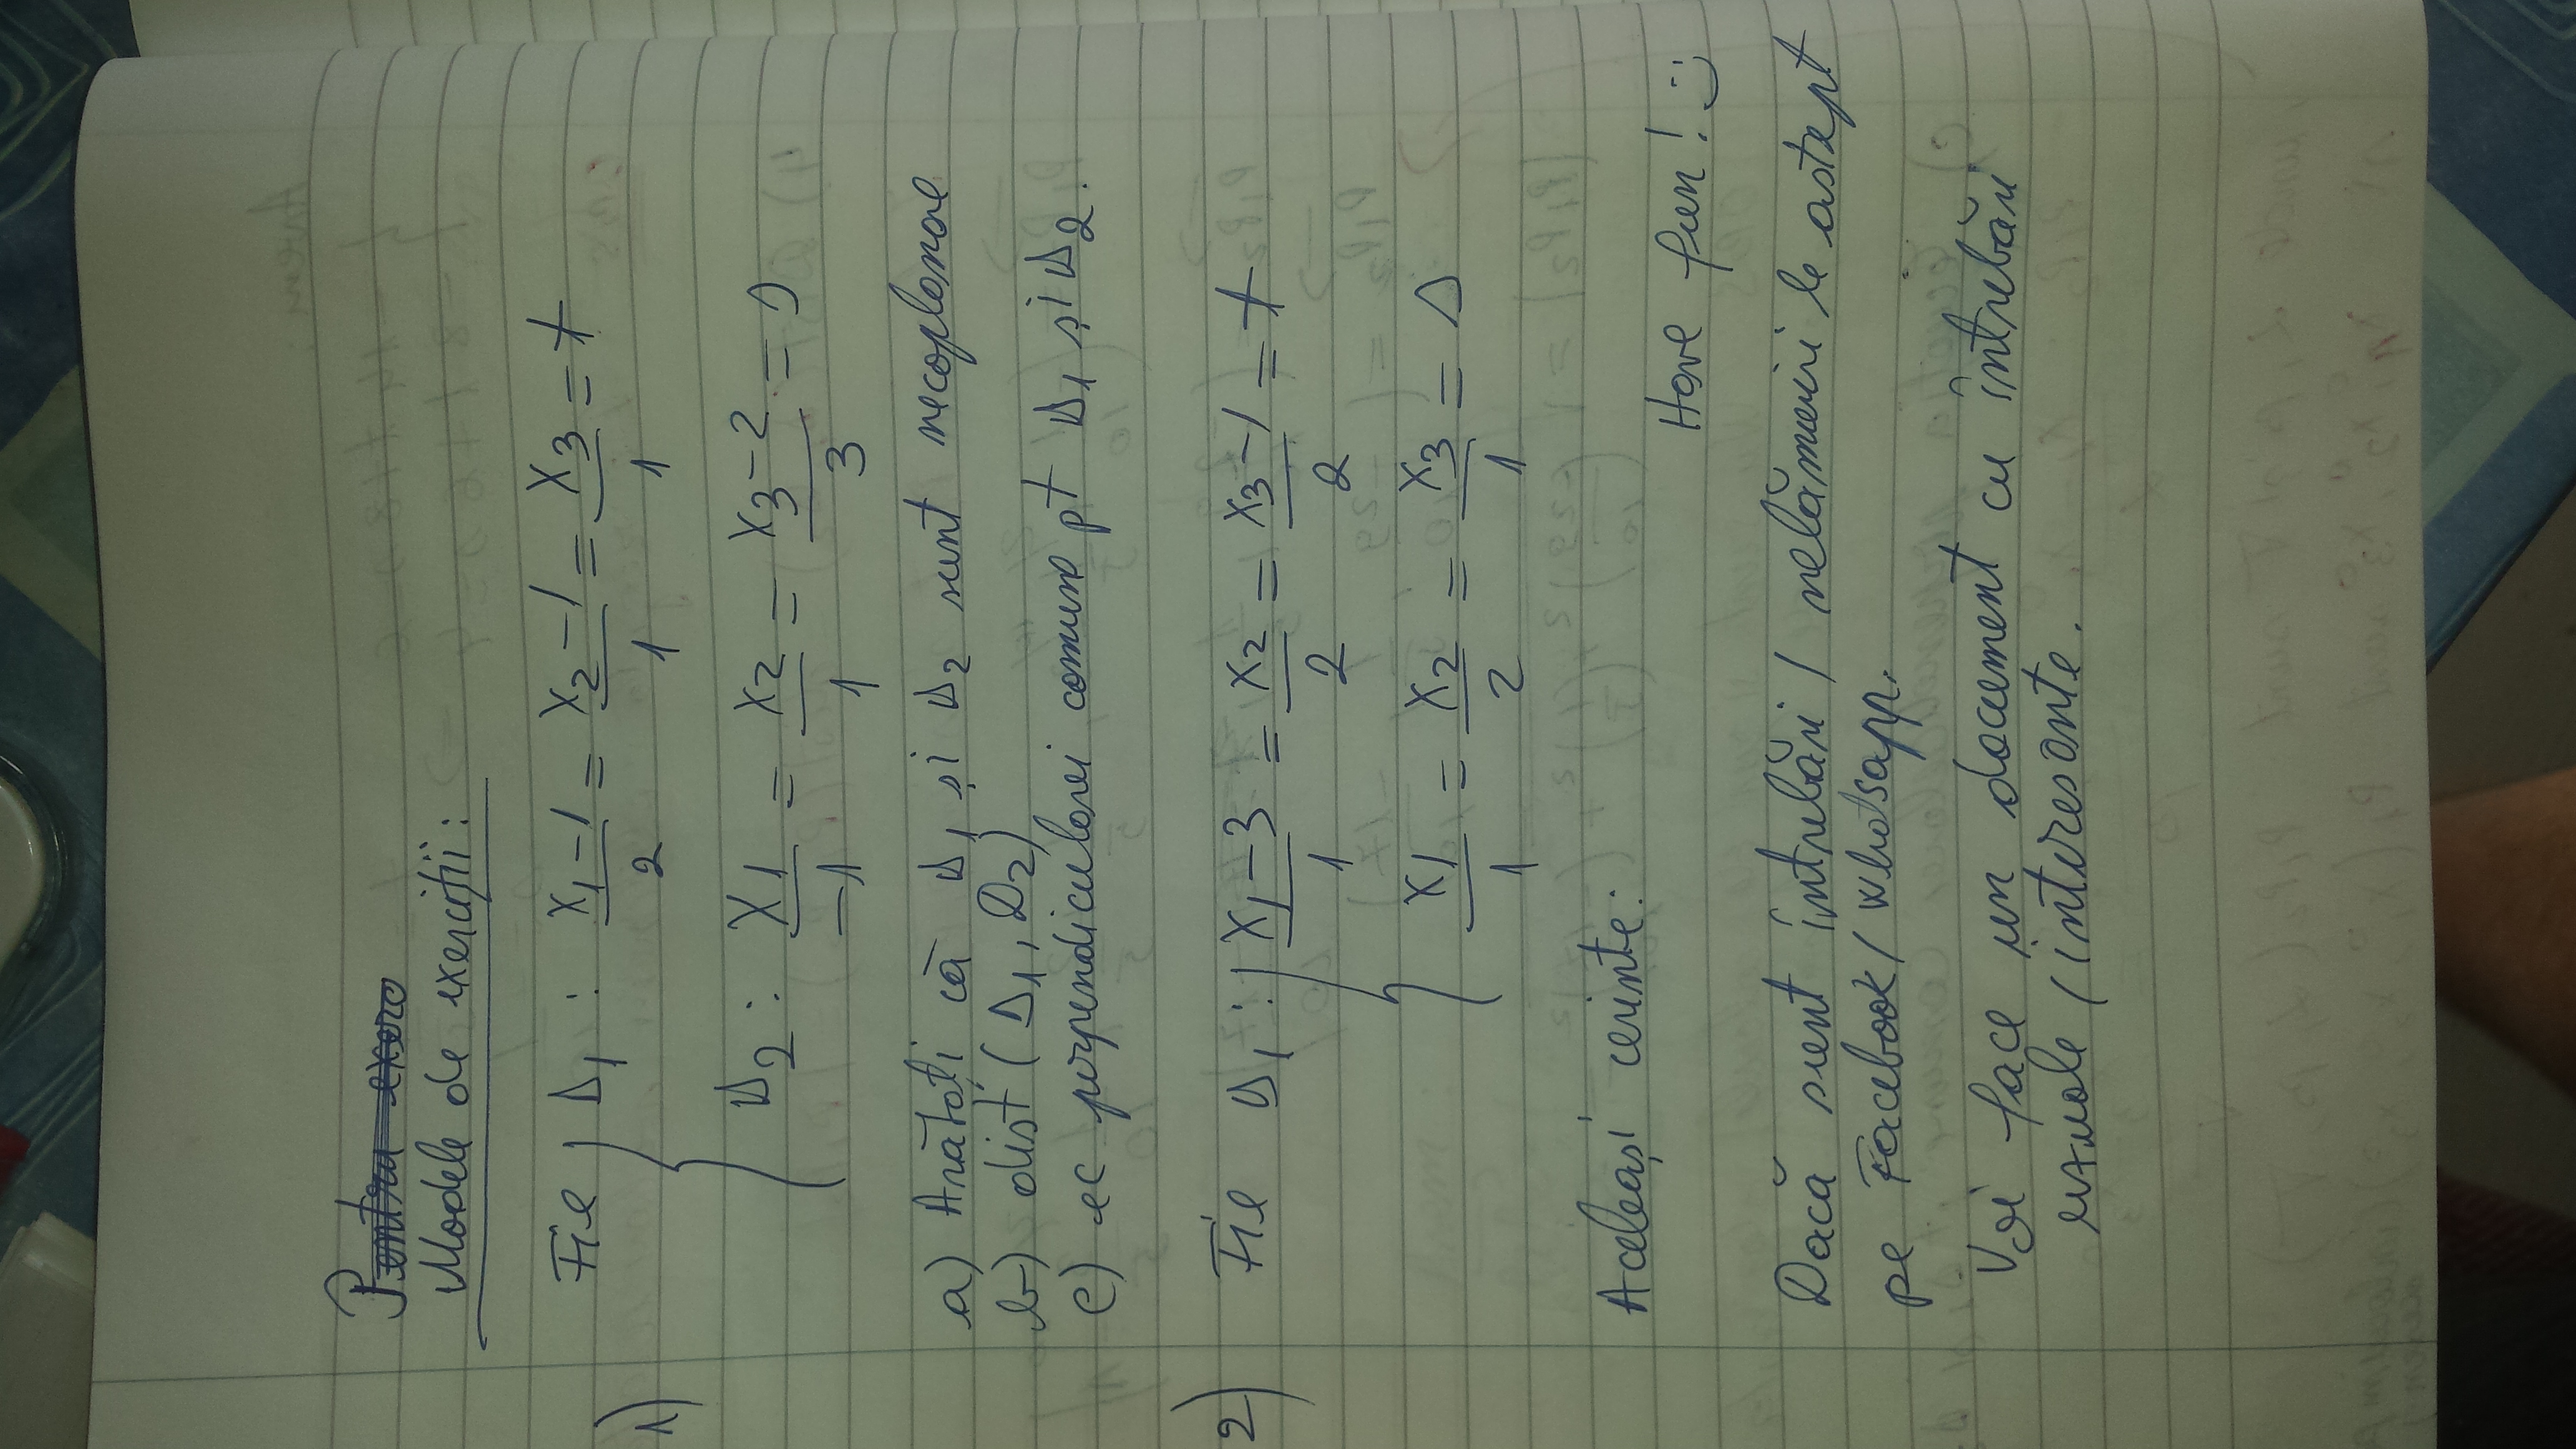 Pentru exerc
Modele de exerciții:
1) Fie { D₁ : (x₁-1)/2 = (x₂-1)/1 = x₃/1 = t
D₂ : x₁/-1 = x₂/1 = (x₃-2)/3 = s
a) Arătați că D₁ și D₂ sunt necoplanare
b) dist (D₁, D₂)
c) ec perpendicularei comune pt D₁ și D₂.
2) Fie D₁ : { (x₁-3)/1 = x₂/2 = (x₃-1)/2 = t
x₁/1 = x₂/2 = x₃/1 = s
Aceleași cerinte:
Have fun! :)
Dacă sunt întrebări / nelămuriri le astept
pe Facebook / Whatsapp.
Voi face un document cu întrebări
uzuale / interesante.